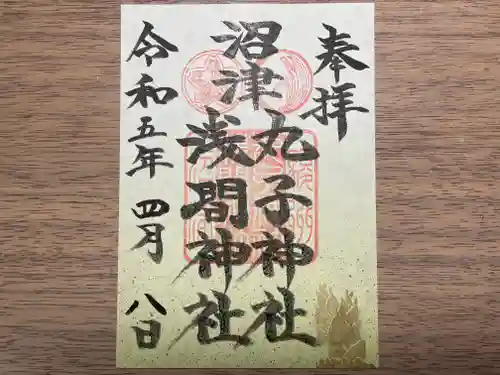 奉拝
沼津
丸子神社
浅間神社
令和五年四月八日